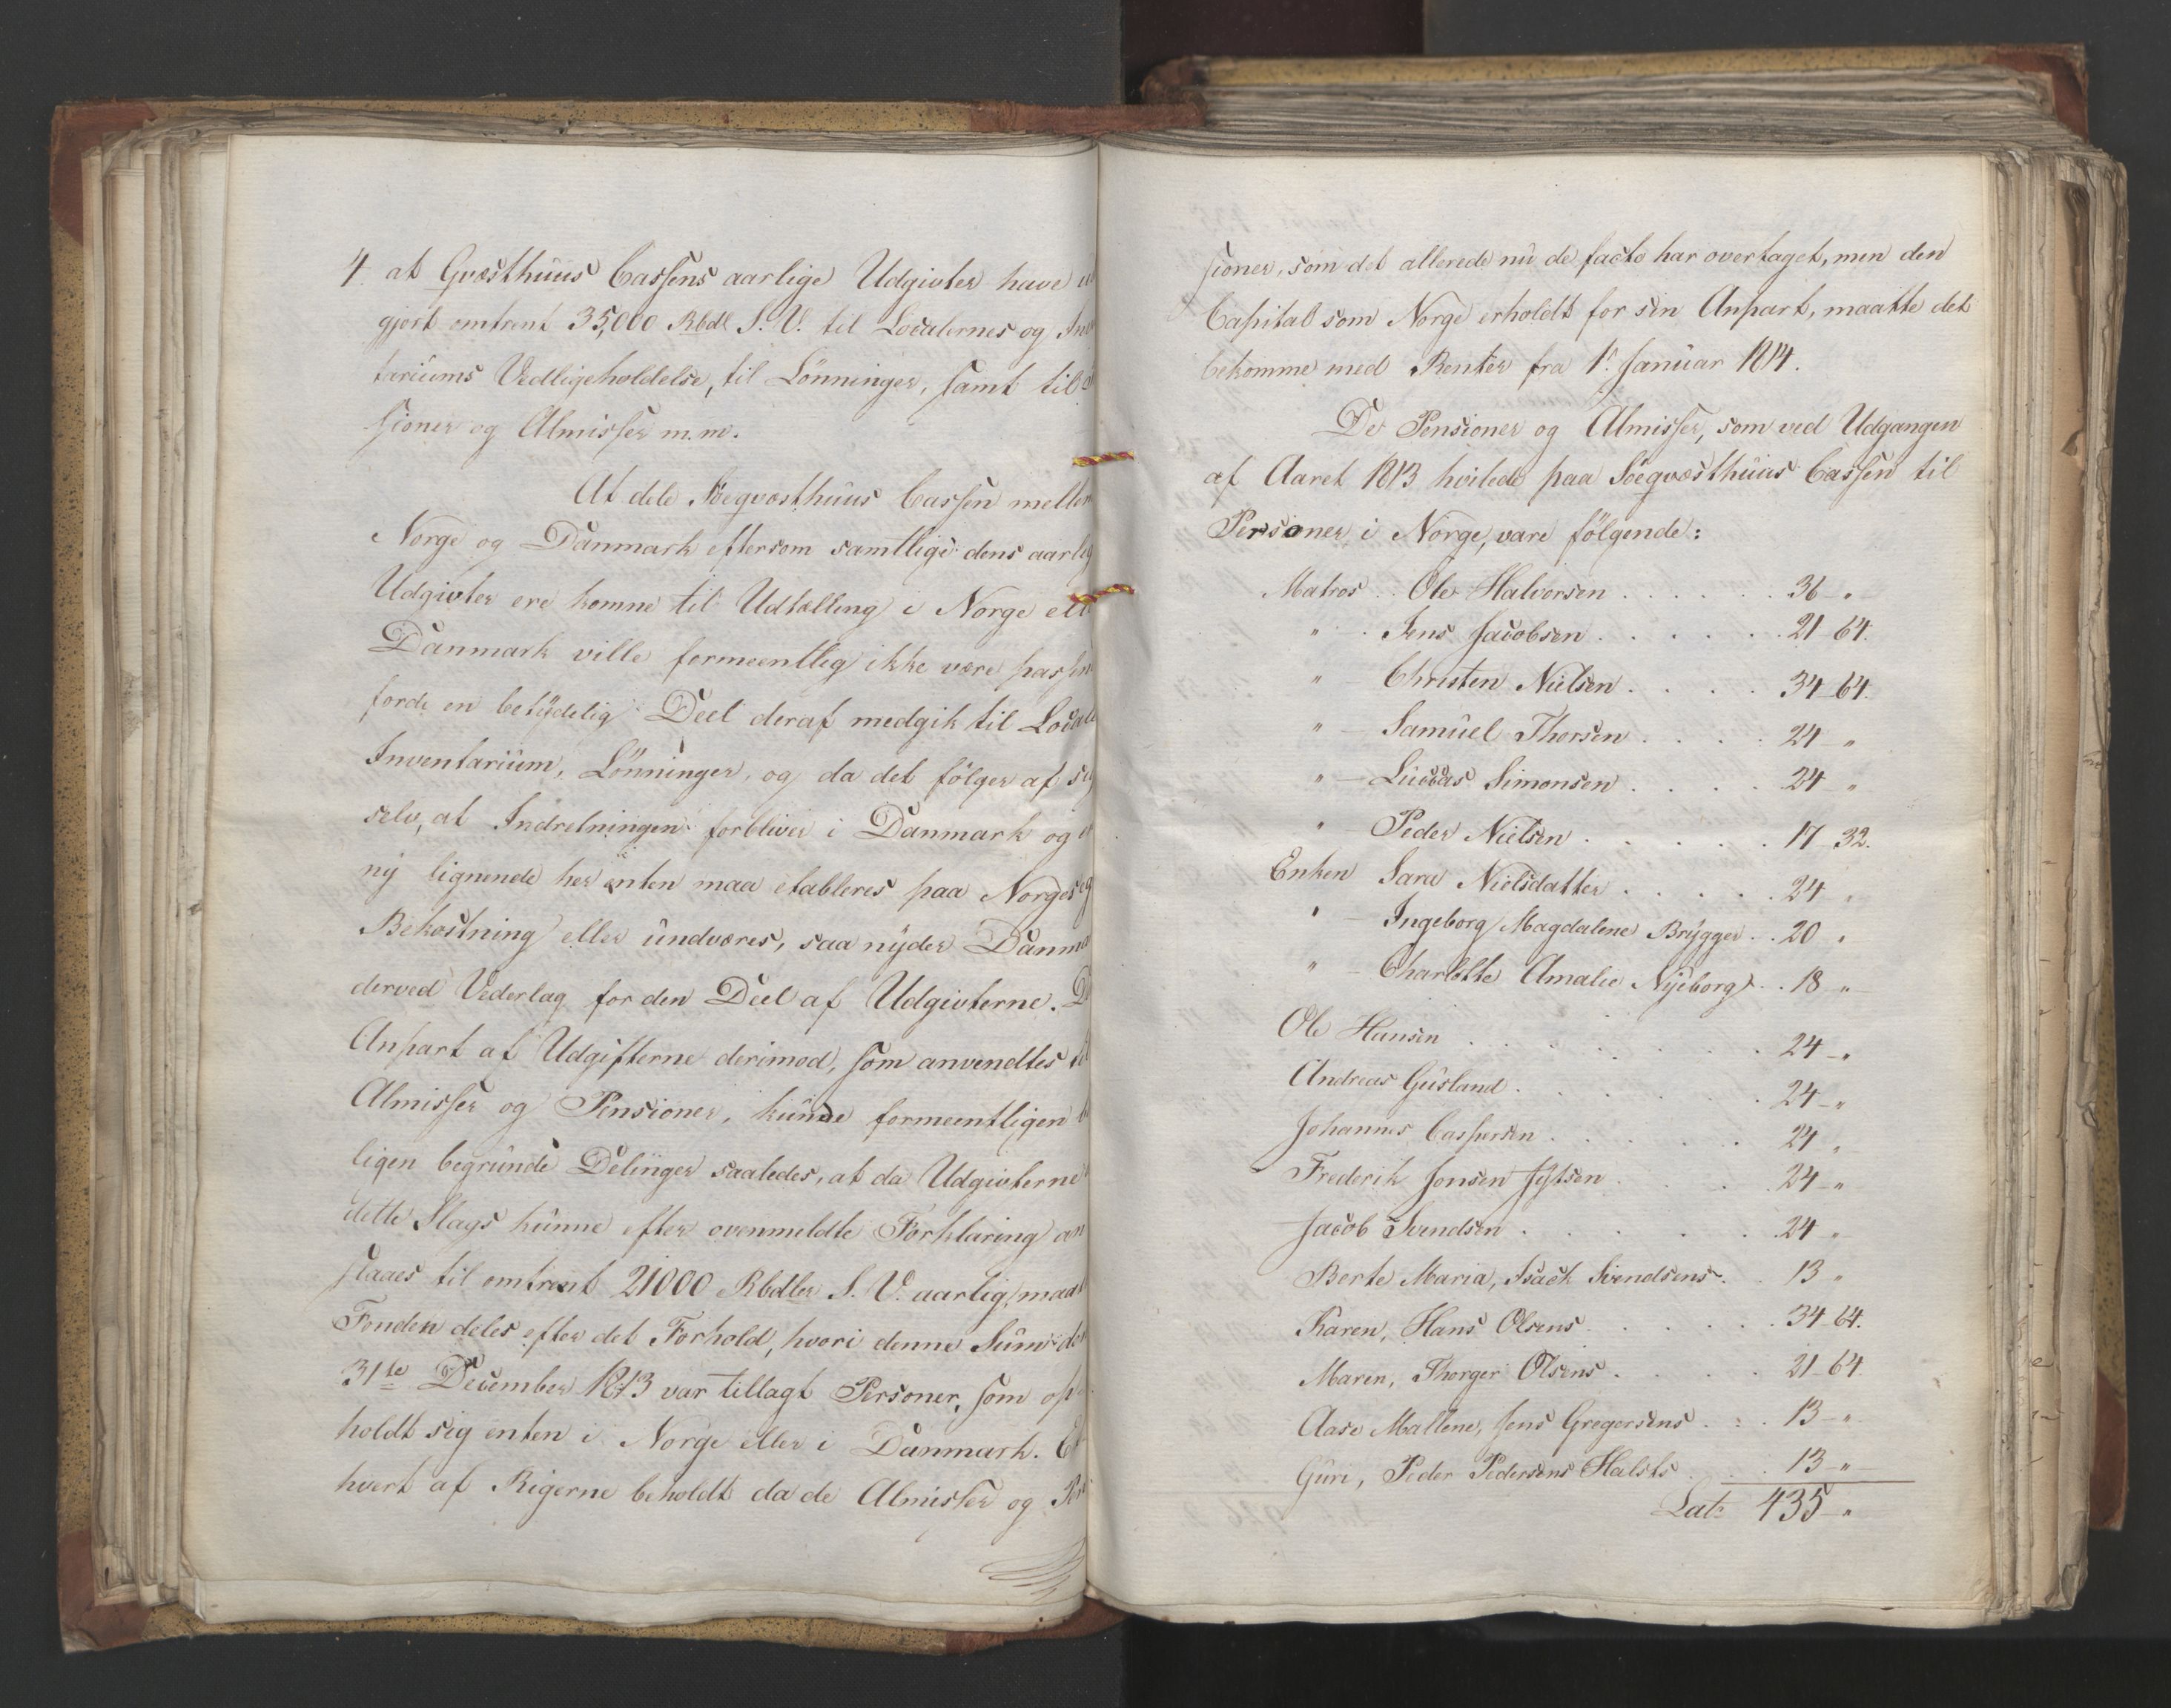 4. at Qvæsthuus Cassens aarlige Udgivter have
gjort omtrent 35,000 Rbdl S. V. til Localernes og
tariums Vedligeholdelse, til Lönninger, samt til
sioner og Almisser m.m.
At dele Söeqvæsthuus Cassen mellem
Norge og Danmark eftersom samtlige dens aarlig
Udgivter ere komne til Udtælling i Norge ell
Danmark ville formeentlig ikke være passen
fordi en betydelig Deel deraf medgik til Local
Inventarium, Lönninger, og da det fölger af sig
selv, at Indretningen forbliver i Danmark og
ny lignende her enten maa etableres paa Norges
Bekostning eller undværes, saa nyder Danma
derved Vederlag for den Deel af Udgivterne. De
Anpart af Udgifterne derimod, som anvendtes til
Almisser og Pensioner, kunde formeentligen
ligen begrunde Delinger saaledes, at da Udgivterne
dette Slags kunne efter ovenmeldte Forklaring an
slaaes til omtrent 21000 Rbdler S. V. aarlig, maat
Fonden deles efter det Forhold, hvori denne Sum den
31te December 1813 var tillagt Personer, som op
holdt sig enten i Norge eller i Danmark. Et
hvert af Rigerne beholdt da de Almisser og Pen
sioner, som det allerede nu de facto har overtaget, men den
Capital som Norge erholdt for sin Anpart, maatte det
bekomme med Renter fra 1. Januar 1814.
De Pensioner og Almisser, som ved Udgangen
af Aaret 1813 hvilede paa Söeqvæsthuus Cassen til
Personer i Norge, vare fölgende:
Matros . . Ole Halvorsen . . . . . . 36 - "
" - Jens Jacobsen . . . . . . 21 - 64.
" - Christen Nielsen . . . . 34 - 64.
" - Samuel Thorsen . . . . 24 - "
" - Luccas Simonsen . . . . 24 "
" - Peder Nielsen . . . . . . 17 - 32.
Enken Sara Nielsdatter . . . . . 24 "
" - Ingeborg Magdalene Brygger . . 20 "
" - Charlotte Amalie Nyeborg . . 18 "
Ole Hansen . . . . . . . 24 - "
Andreas Gusland . . . . . . . 24 - "
Johannes Caspersen . . . . . . 24 "
Frederik Jonsen . . . 24 - "
Jacob Svendsen . . . . . . 24 "
Berte Maria, Isach Svendsens . . 13 "
Karen, Hans Olsens . . . . . 34 - 64.
Maren, Thorger Olsens . . . . . 21 - 64.
Aase Mallene, Jens Gregersens . . . 13 - "
Guri, Peder Pedersens . . . 13 - "
Lat: 435 - "